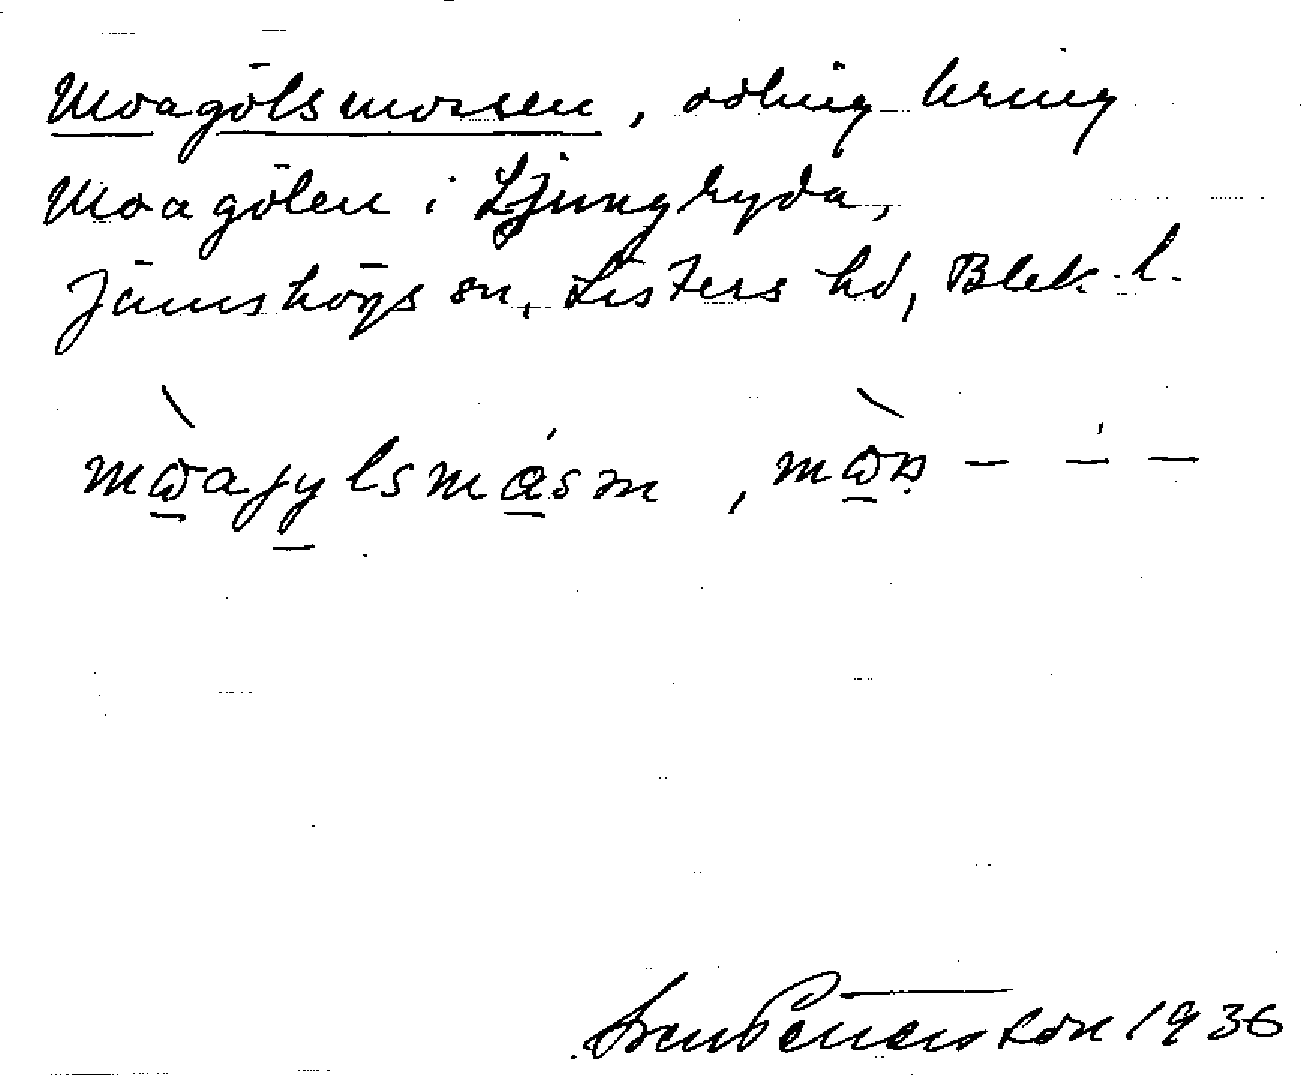 Moagölsmossen, odling kring
Moagölen i Ljungryda,
Jämshögs sn, Listers hd, Blek. l.
Sven Petersson 1936